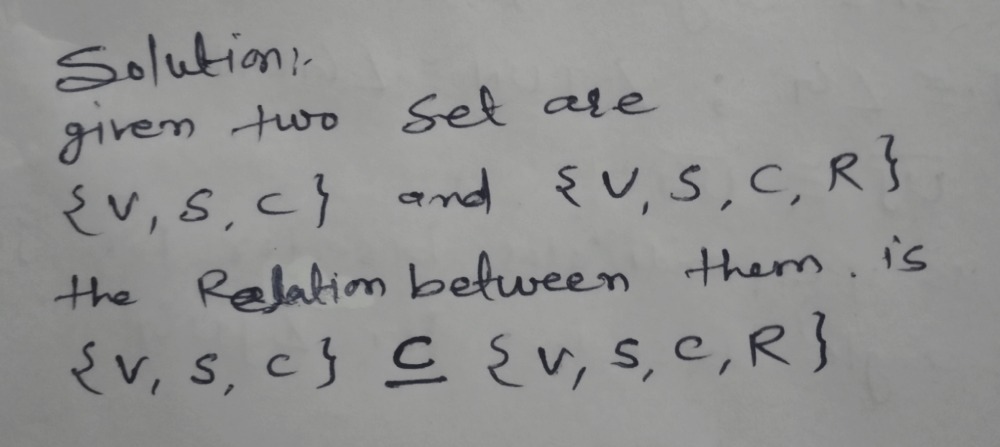 Solution:-
given two set are
{V, S, C} and {V, S, C, R}
the Relation between them. is
{V, S, C} ⊆ {V, S, C, R}